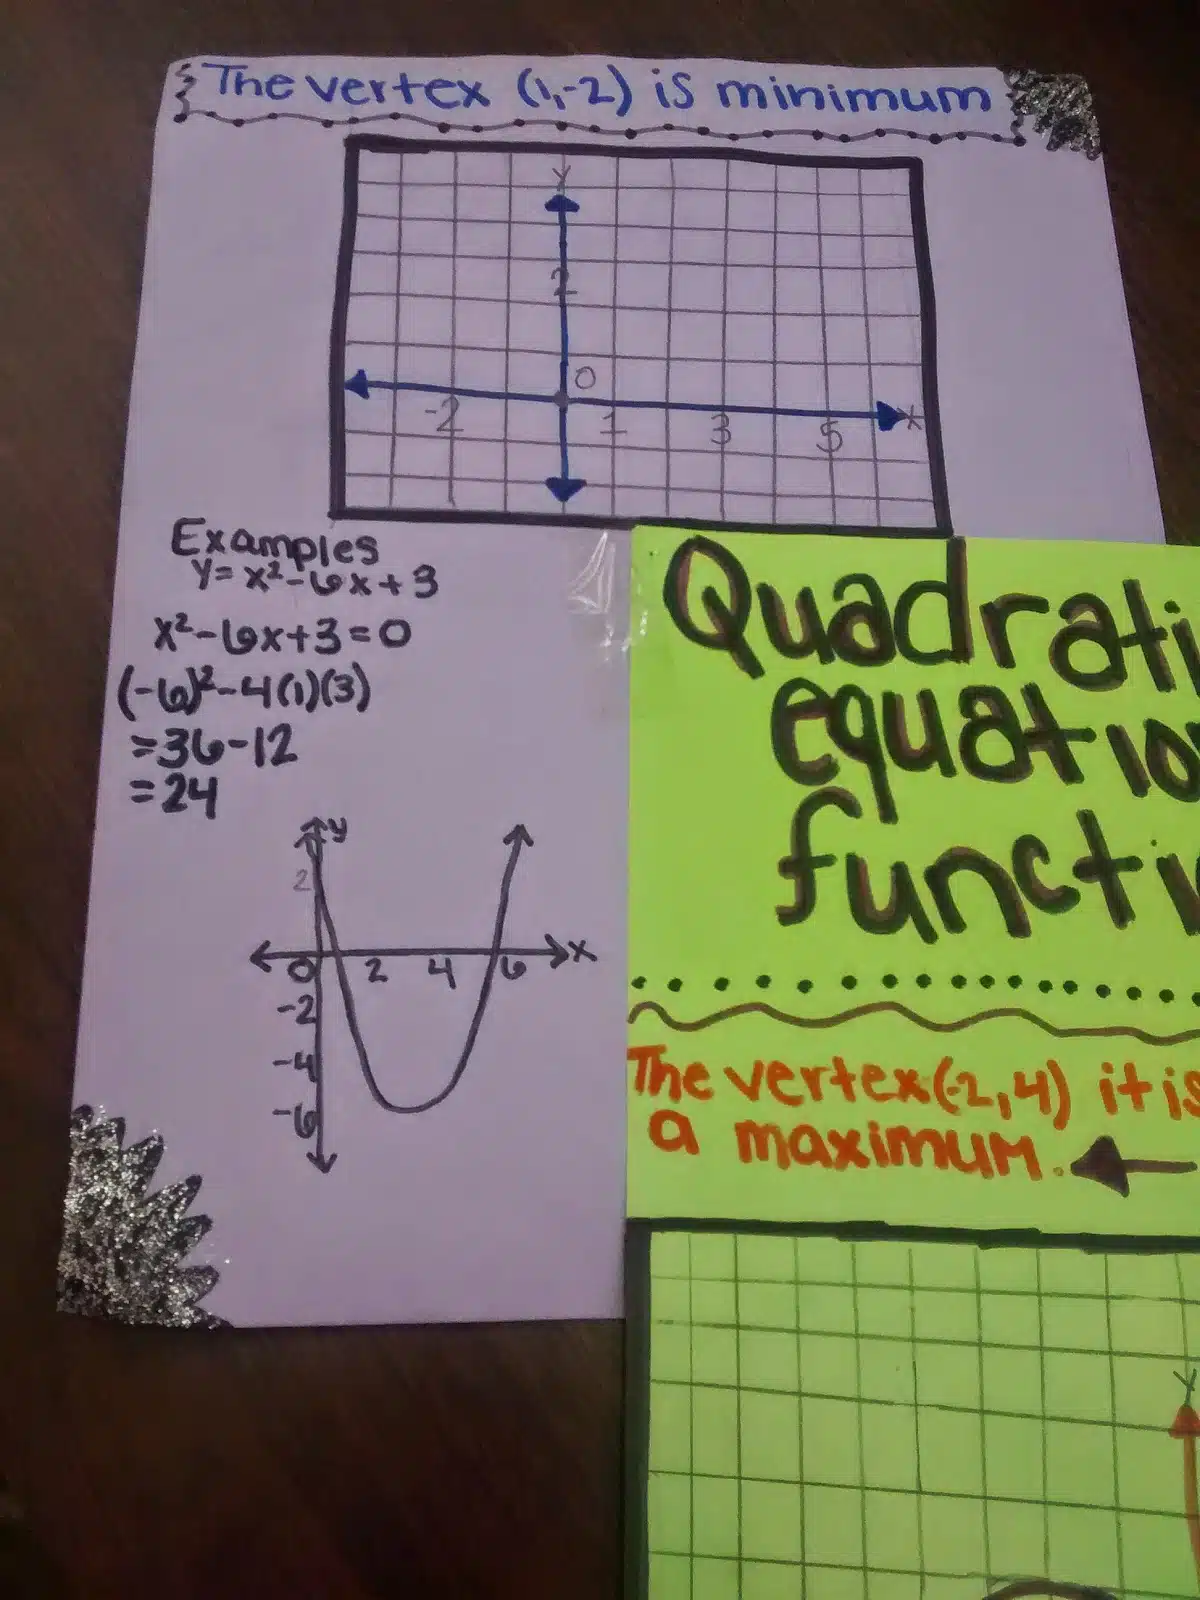 The vertex (1,-2) is minimum
Y
2
0
-2 1 3 5 X
Examples
y=x²-6x+3
x²-6x+3=0
(-6)²-4(1)(3)
=36-12
=24
y
2
0 2 4 6 x
-2
-4
-6
Quadrati
equation
functi
The vertex(-2,4) it is
a maximum.
Y